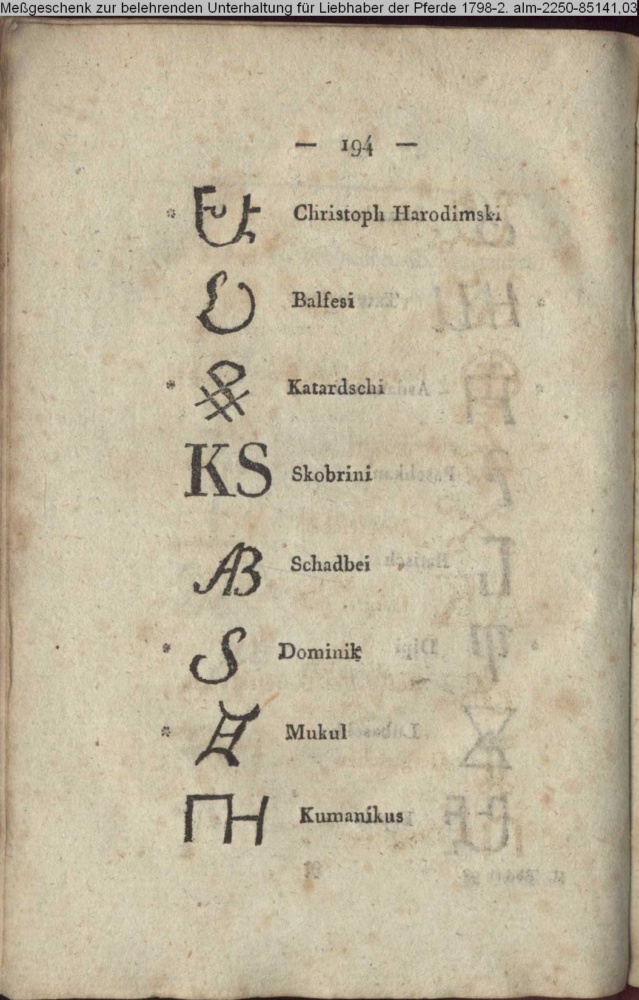 Meßgeschenk zur belehrenden Unterhaltung für Liebhaber der Pferde 1798-2. alm-2250-85141,03
— 194 —
* Christoph Harodimski
Balfesi
* Katardschi
KS Skobrini
AB Schadbei
* S Dominik
* Mukul
Kumanikus